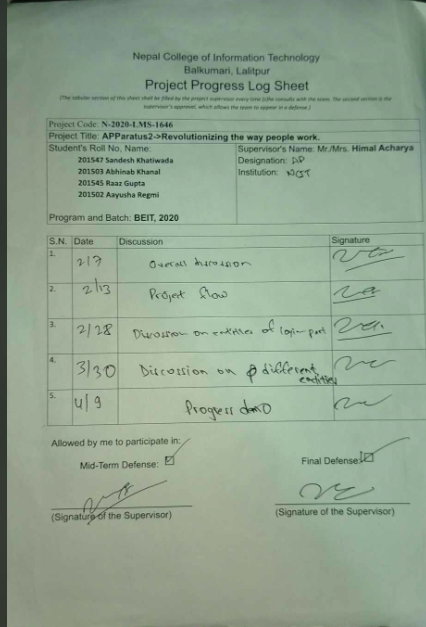 Nepal College of Information Technology
Balkumari, Lalitpur
Project Progress Log Sheet
(The tabular section of this sheet shall be filled by the project supervisor every time he/she consults with the team. The second section is the
supervisor's approval, which allows the team to appear in a defense.)
Project Code: N-2020-LMS-1646
Project Title: APParatus2->Revolutionizing the way people work.
Student's Roll No, Name:
201547 Sandesh Khatiwada
201503 Abhinab Khanal
201545 Raaz Gupta
201502 Aayusha Regmi
Supervisor's Name: Mr/Mrs. Himal Acharya
Designation: AP
Institution: NCIT
Program and Batch: BEIT, 2020
S.N. Date Discussion Signature
1. 2/7 Overall discussion
2. 2/13 Project flow
3. 2/28 Discussion on entities of login part
4. 3/30 Discussion on different entities
5. 4/9 Progress demo
Allowed by me to participate in:
Mid-Term Defense: ☑
Final Defense: ☑
(Signature of the Supervisor)
(Signature of the Supervisor)